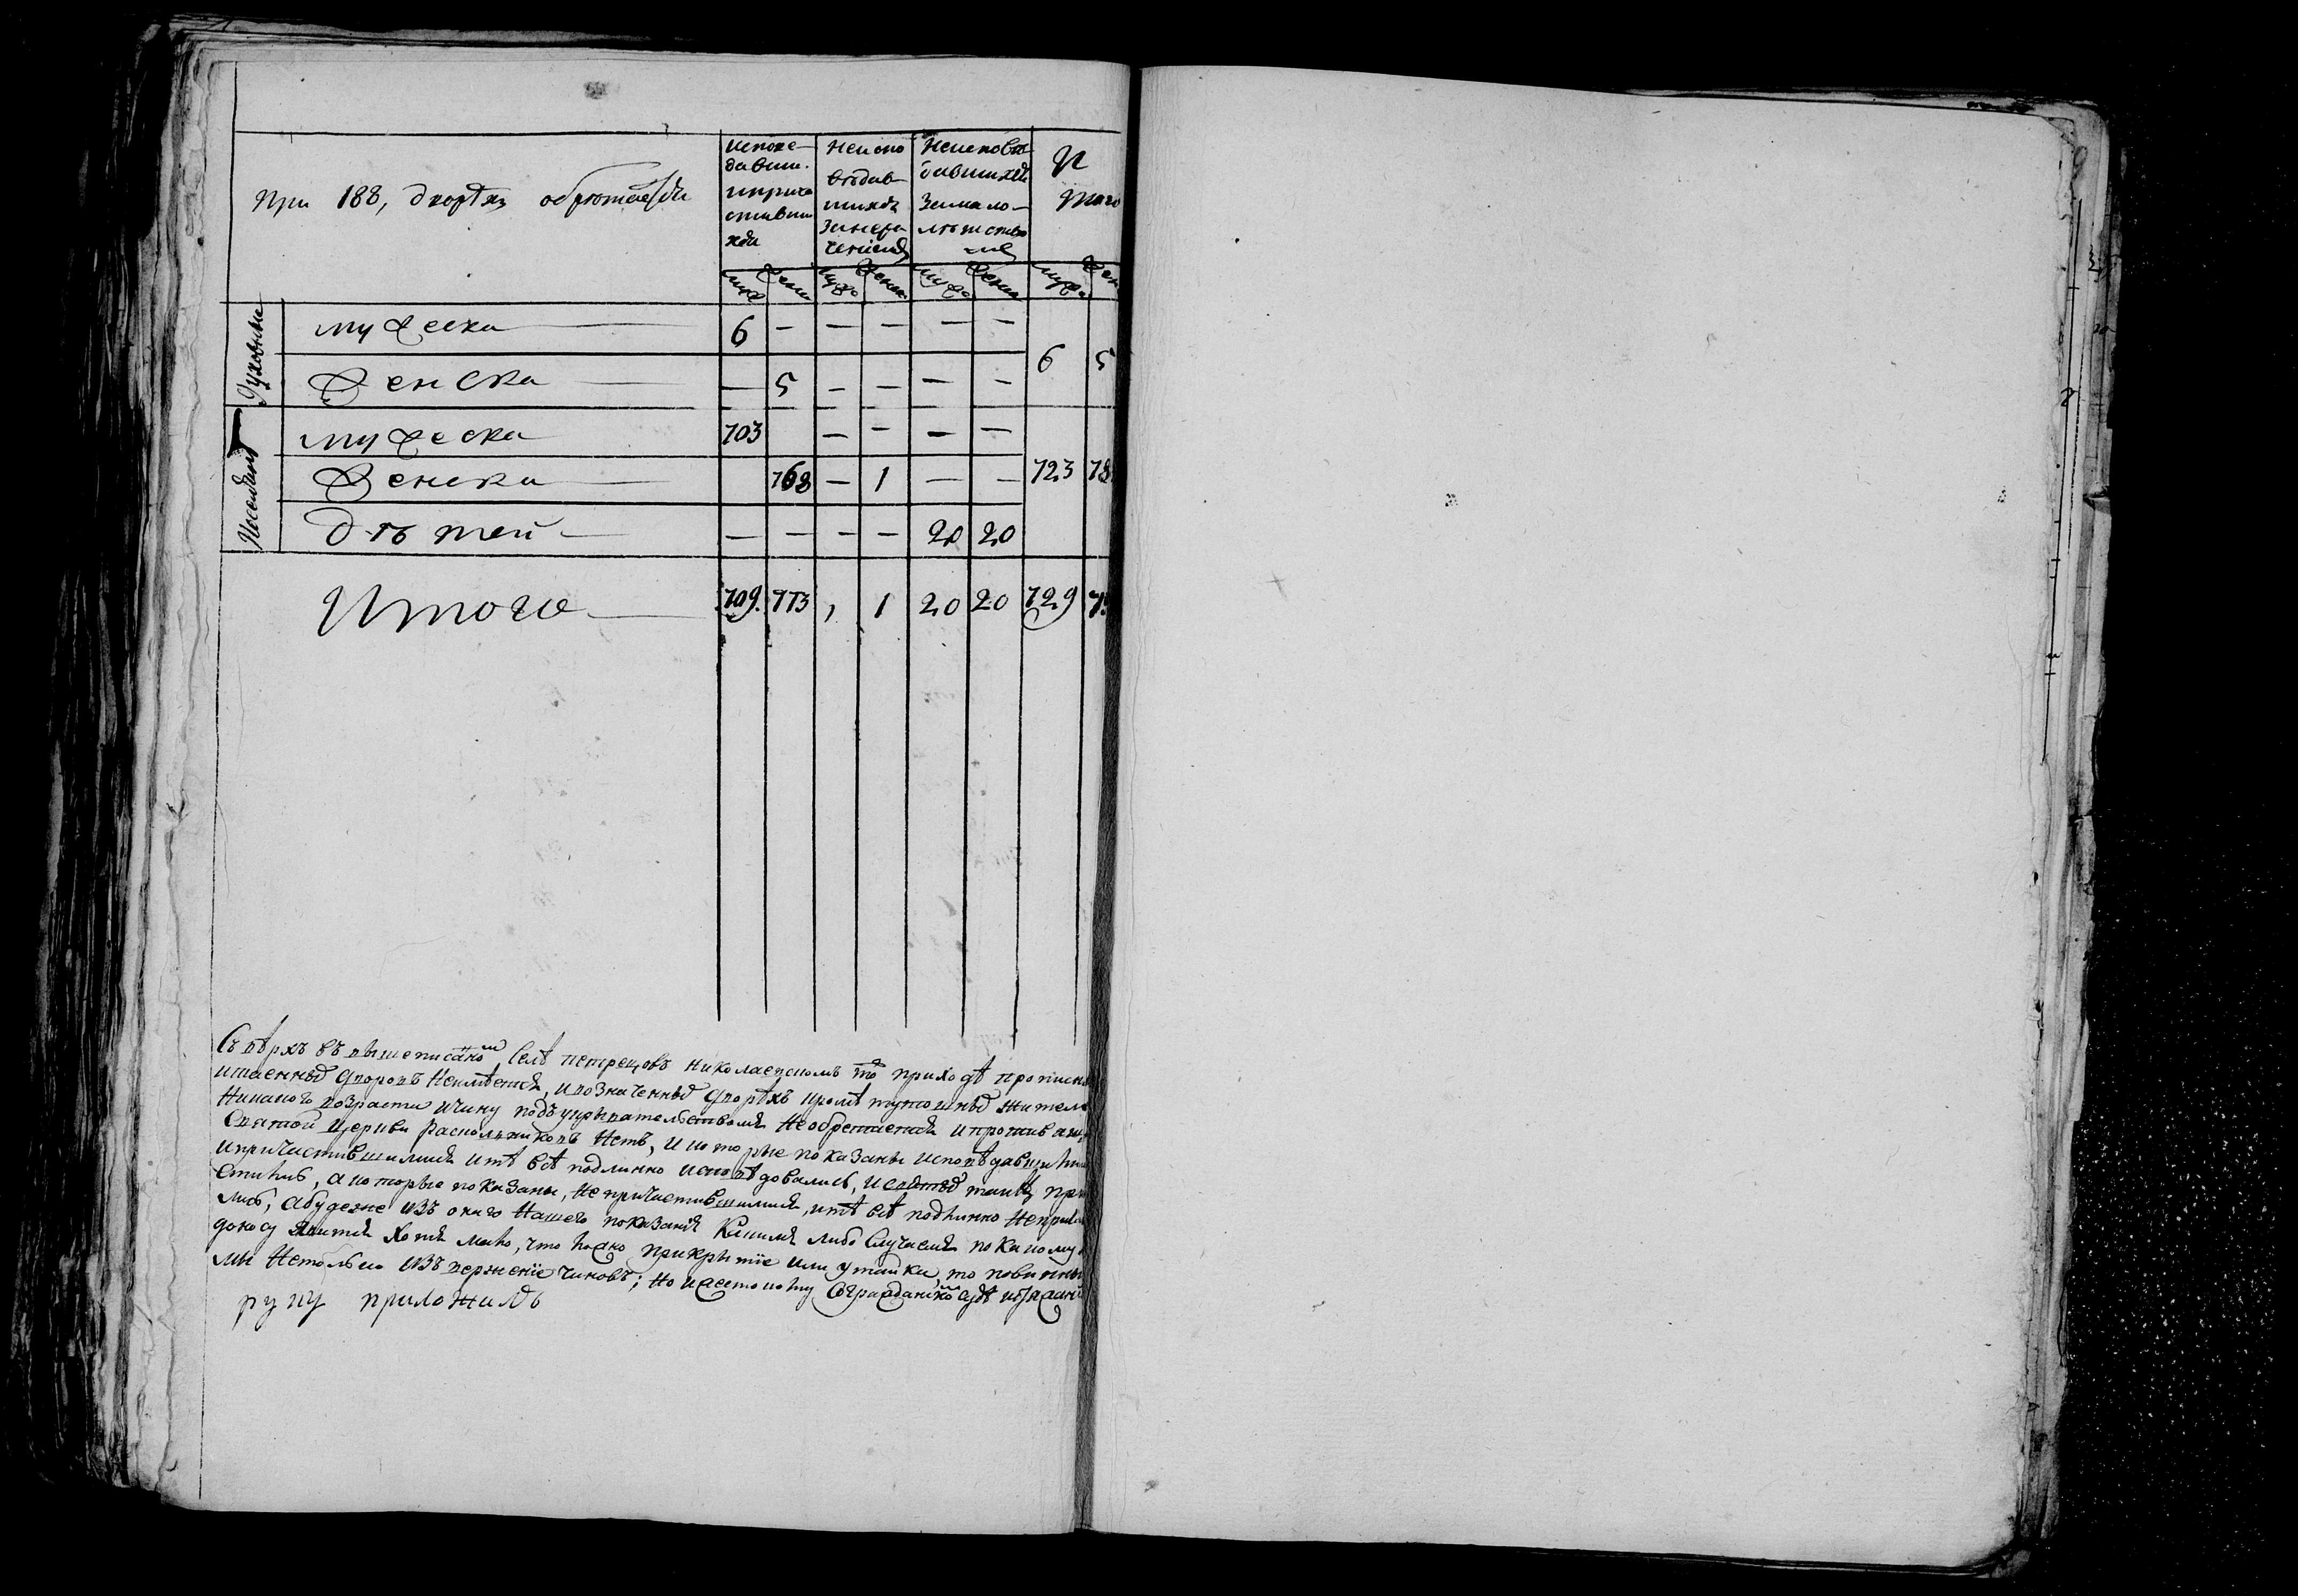 При 188, дворѣхъ обрѣтается
испове-
давши.
иприча
стивши
хся
Неиспо
вѣдав
шихся
занера
чениемъ
Неисповѣ
давшихся
замало-
лѣтство
мъ
И
того
муж жен муж женск муж женс муж жен
Духовные
мужеска 6 — — — — —
6 5
женска — 5 — — — —
Посѣляне
мужеска 703 — — — —
женска 768 — 1 — — 723 78
дѣтей — — — — 20 20
Итого 709. 773 , 1 20 20 729 7
Сверхъ въ вышеписанно селѣ петрецовъ николаевскомъ то приходѣ прописн
итаенныхъ дворовъ Неимѣется, ивозначенныхъ дворѣхъ кромѣ тутошныхъ жителе
Никакого возраста ичину подъ укрывательствомъ Необретается ипротив
Святой церкви раскольниковъ Нетъ, и которые показаны исповѣдавши
ипричастившимися итѣ всѣ подлинно исповѣдовались, и таинъ при
стились, а которые показаны, Не причастившимися, итѣ всѣ подлинно Неприч
лись, абудеже изъ онаго Нашего показания какимъ либо случаемъ покакому
доносу явится хотя мало, что прикрытие или утайки, то повинны
мы Нетолько извержение чиновъ; Но и жестокому гражданско судѣ
руку приложилъ